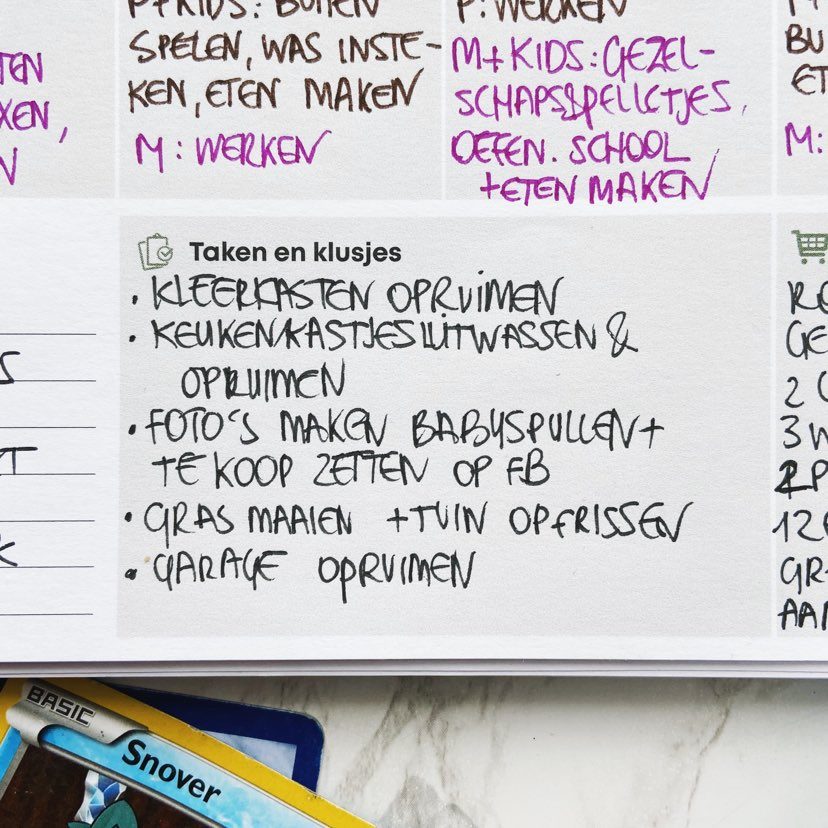 P+KIDS: BUITEN
SPELEN, WAS INSTE-
KEN, ETEN MAKEN
M: WERKEN
P: WERKEN
M+KIDS: GEZEL-
SCHAPSSPELLETJES,
OEFEN. SCHOOL
+ETEN MAKEN
M:
Taken en klusjes
• KLEERKASTEN OPRUIMEN
• KEUKENKASTJES UITWASSEN &
OPRUIMEN
• FOTO'S MAKEN BABYSPULLEN +
TE KOOP ZETTEN OP FB
• GRAS MAAIEN + TUIN OPFRISSEN
• GARAGE OPRUIMEN
BASIC
Snover